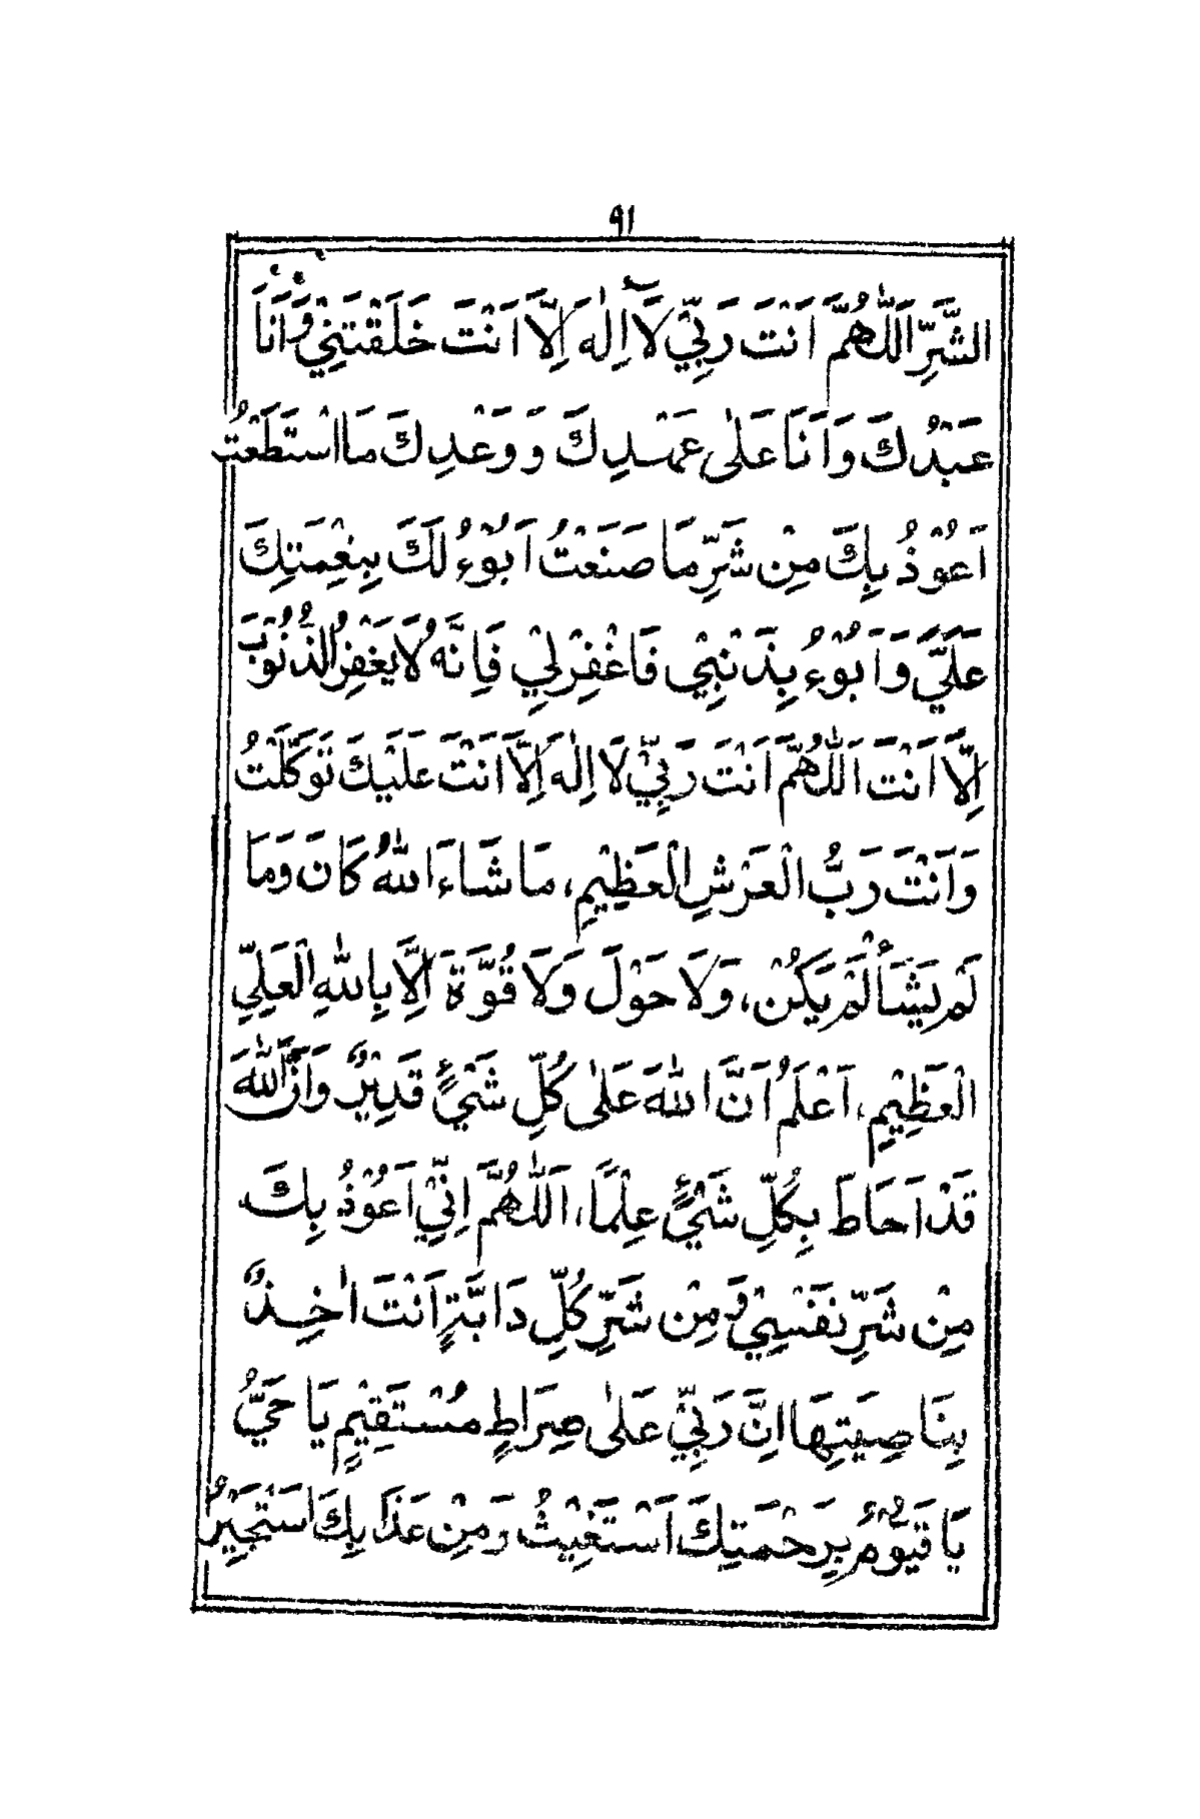 ٩١
الشَّرِّ اَللّٰهُمَّ اَنْتَ رَبِّيْ لَآ اِلٰهَ اِلَّا اَنْتَ خَلَقْتَنِيْ وَاَنَا
عَبْدُكَ وَاَنَا عَلٰى عَهْدِكَ وَ وَعْدِكَ مَا اسْتَطَعْتُ
اَعُوْذُ بِكَ مِنْ شَرِّ مَا صَنَعْتُ اَبُوْءُ لَكَ بِنِعْمَتِكَ
عَلَيَّ وَاَبُوْءُ بِذَنْبِيْ فَاغْفِرْلِيْ فَاِنَّهُ لَا يَغْفِرُ الذُّنُوْبَ
اِلَّا اَنْتَ اَللّٰهُمَّ اَنْتَ رَبِّيْ لَا اِلٰهَ اِلَّا اَنْتَ عَلَيْكَ تَوَكَّلْتُ
وَاَنْتَ رَبُّ الْعَرْشِ الْعَظِيْمِ، مَا شَاءَ اللّٰهُ كَانَ وَمَا
لَمْ يَشَأْ لَمْ يَكُنْ، وَلَا حَوْلَ وَلَا قُوَّةَ اِلَّا بِاللّٰهِ الْعَلِيِّ
الْعَظِيْمِ، اَعْلَمُ اَنَّ اللّٰهَ عَلٰى كُلِّ شَيْءٍ قَدِيْرٌ وَاَنَّ اللّٰهَ
قَدْ اَحَاطَ بِكُلِّ شَيْءٍ عِلْمًا، اَللّٰهُمَّ اِنِّيْ اَعُوْذُ بِكَ
مِنْ شَرِّ نَفْسِيْ وَمِنْ شَرِّ كُلِّ دَابَّةٍ اَنْتَ اٰخِذٌ
بِنَاصِيَتِهَا اِنَّ رَبِّيْ عَلٰى صِرَاطٍ مُسْتَقِيْمٍ يَا حَيُّ
يَا قَيُّوْمُ بِرَحْمَتِكَ اَسْتَغِيْثُ وَمِنْ عَذَابِكَ اَسْتَجِيْرُ